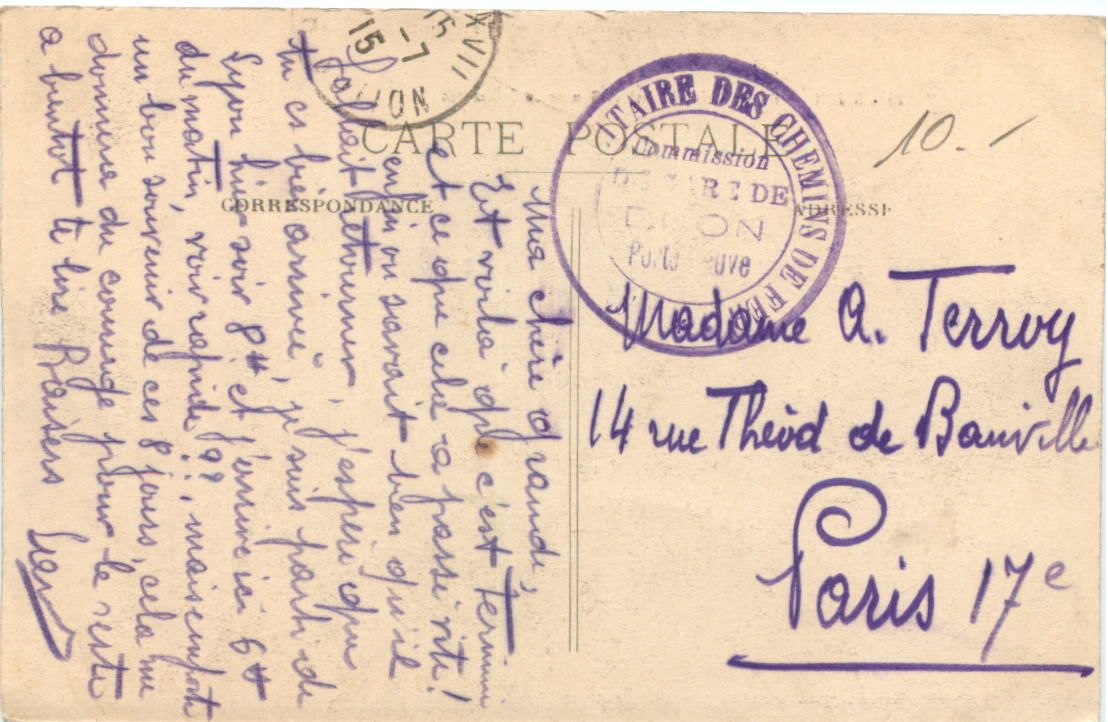 CARTE POSTALE
CORRESPONDANCE
ADRESSE
15
15 -7
XVII
DIJON
ITAIRE DES CHEMINS DE FER
Commission
DE GARE DE
DIJON
Porte Neuve
10.-
Ma chère grande,
Et voilà que c'est terminé
et ce que cela a passé vite!
enfin on savait bien qu'il
fallait retourner, j'espère que
tu es bien arrivée, je suis parti de
Lyon hier soir 8H et j'arrive ici 6H
du matin, voir rapide??, mais emporte
un bon souvenir de ces 8 jours, cela me
donnera du courage pour le reste
a bientot te lire Baisers
Madame A. Terroy
14 rue Théod de Banville
Paris 17e